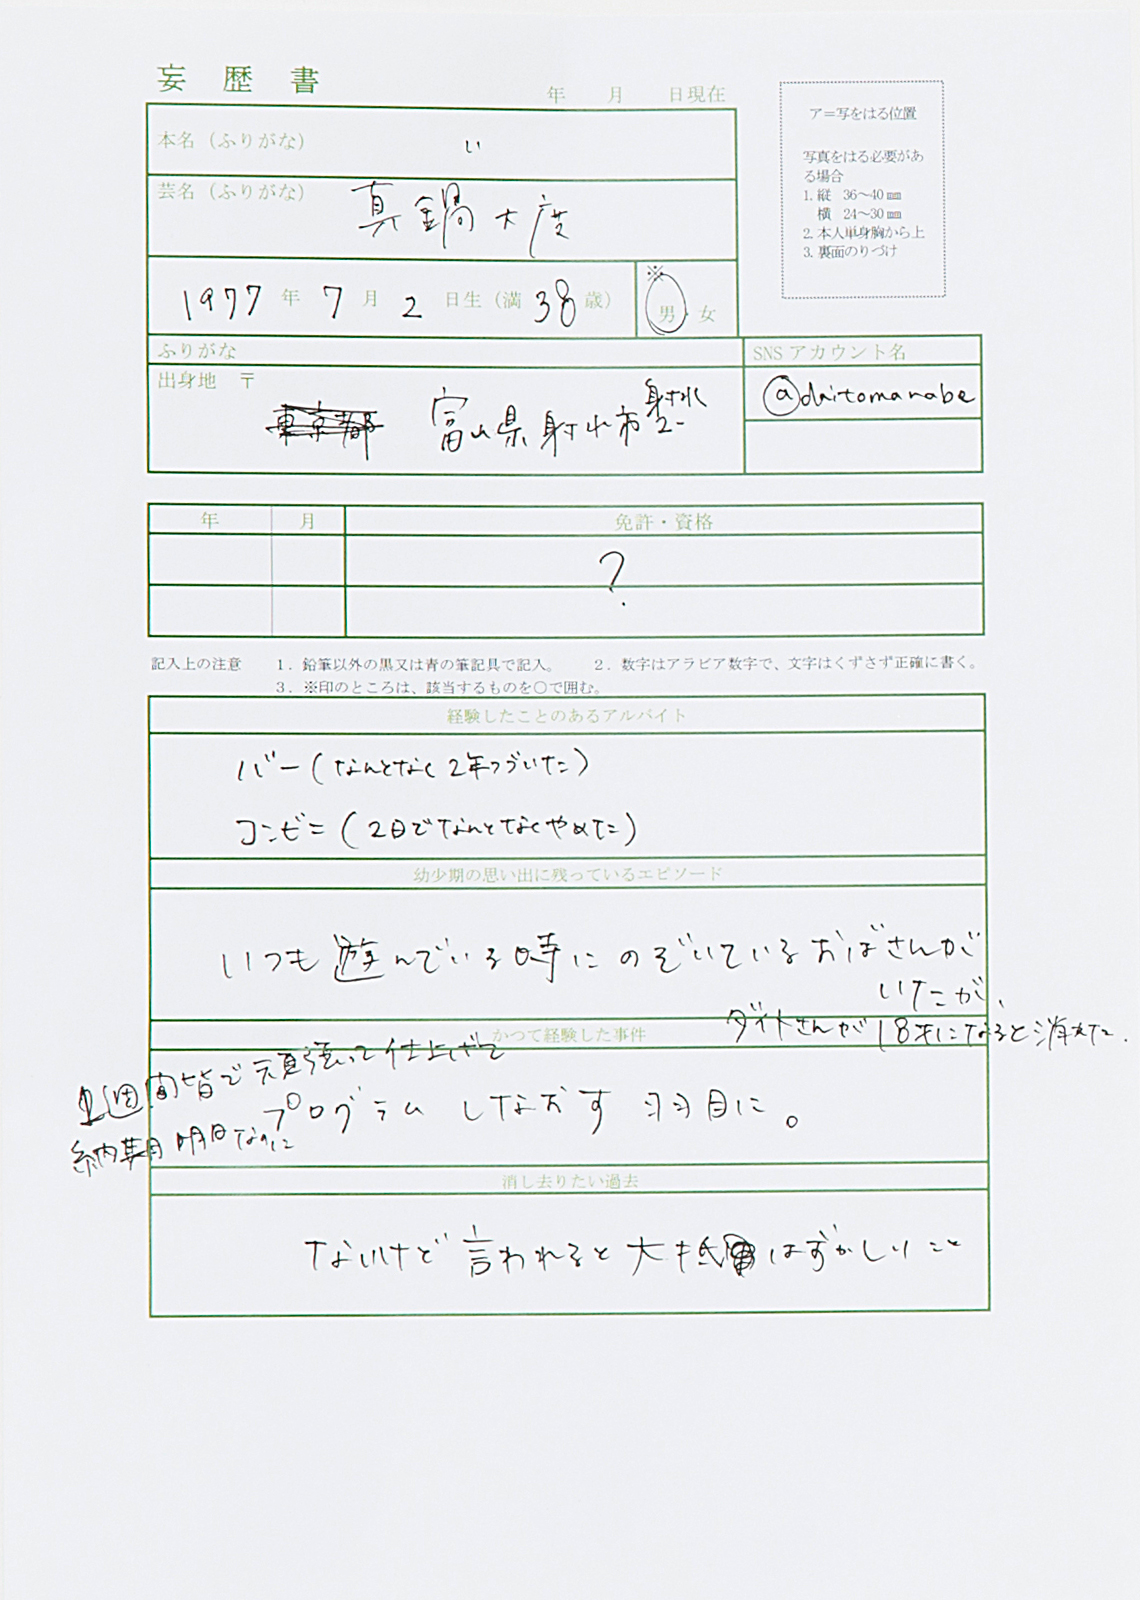 妄歴書
年 月 日現在
ア=写をはる位置
写真をはる必要があ
る場合
1. 縦 36〜40㎜
横 24〜30㎜
2. 本人単身胸から上
3. 裏面のりづけ
本名（ふりがな） い
芸名（ふりがな） 真鍋大度
1977年 7月 2日生（満 38歳）
※
男・女
ふりがな
出身地 〒
東京都 富山県射水市
射水
SNSアカウント名
@daitomanabe
年 月 免許・資格
?
記入上の注意 1．鉛筆以外の黒又は青の筆記具で記入。 2．数字はアラビア数字で、文字はくずさず正確に書く。
3．※印のところは、該当するものを○で囲む。
経験したことのあるアルバイト
バー（なんとなく2年つづいた）
コンビニ（2日でなんとなくやめた）
幼少期の思い出に残っているエピソード
いつも遊んでいる時にのぞいているおばさんが
いたが、
ダイトさんが18才になると消えた.
かつて経験した事件
1週間皆で頑張って仕上げて
納期明日なのに
プログラムしなおす羽目に。
消し去りたい過去
ないけど言われると大抵はずかしいこと